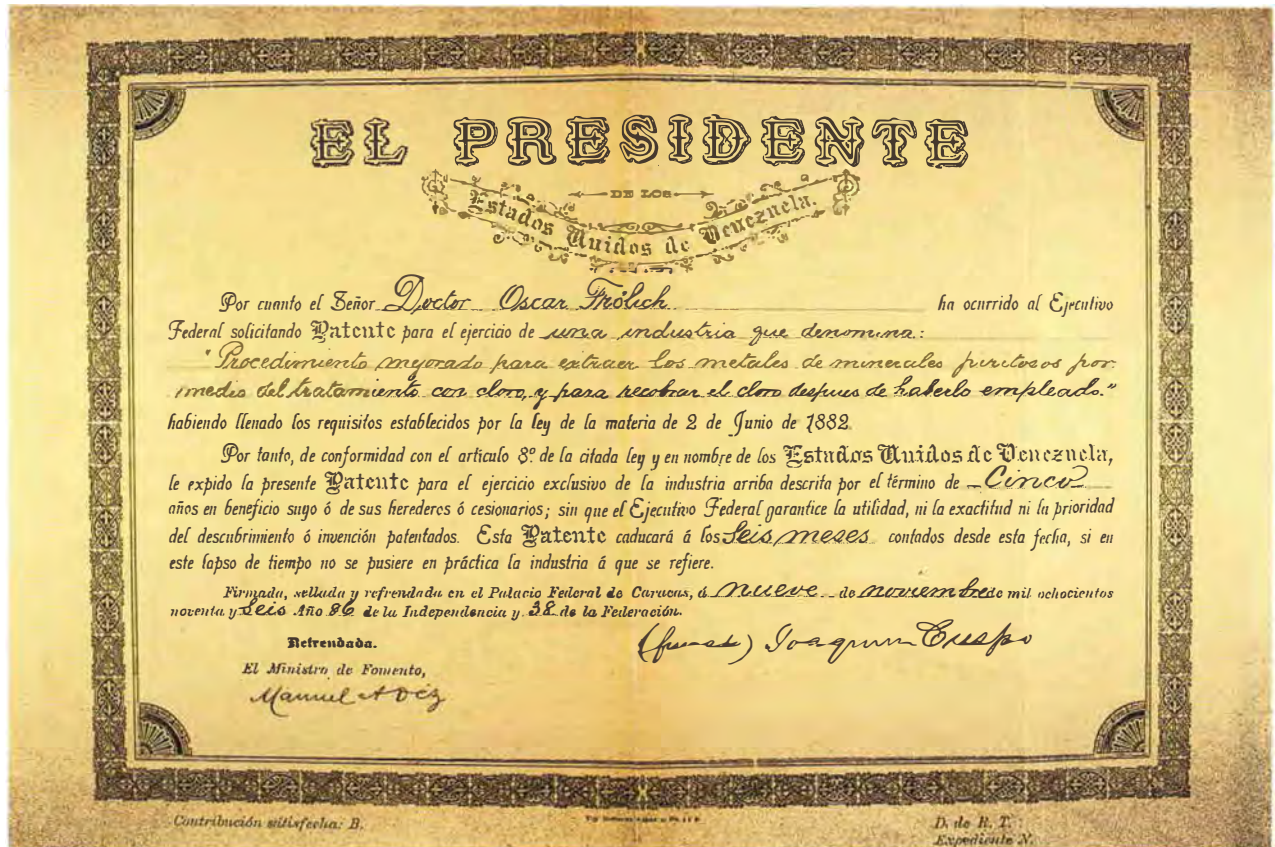 EL PRESIDENTE
DE LOS
Estados Unidos de Venezuela.
Por cuanto el Señor Doctor Oscar Frölich ha ocurrido al Ejecutivo
Federal solicitando Patente para el ejercicio de una industria que denomina:
"Procedimiento mejorado para extraer los metales de minerales piritosos por
medio del tratamiento con cloro, y para recobrar el cloro despues de haberlo empleado."
habiendo llenado los requisitos establecidos por la ley de la materia de 2 de Junio de 1882.
Por tanto, de conformidad con el artículo 8º. de la citada ley y en nombre de los Estados Unidos de Venezuela,
le expido la presente Patente para el ejercicio exclusivo de la industria arriba descrita por el término de Cinco
años en beneficio suyo ó de sus herederos ó cesionarios; sin que el Ejecutivo Federal garantice la utilidad, ni la exactitud ni la prioridad
del descubrimiento ó invención patentados. Esta Patente caducará á los Seis meses contados desde esta fecha, si en
este lapso de tiempo no se pusiere en práctica la industria á que se refiere.
Firmada, sellada y refrendada en el Palacio Federal de Caracas, á nueve de noviembre de mil ochocientos
noventa y Seis Año 86 de la Independencia y 38 de la Federación.
Refrendada.
(firmado) Joaquin Crespo
El Ministro de Fomento,
Manuel A Diez
Contribución satisfecha: B.
D. de R. T. :
Expediente N.